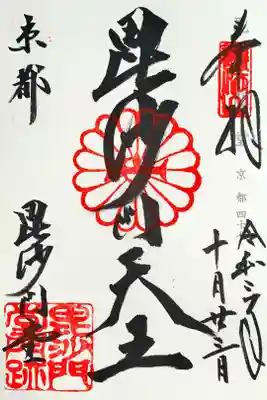 奉拝
京都四十
令和二年
十月廿三日
毘沙門天王
京都
毘沙門堂
毘沙門
堂跡